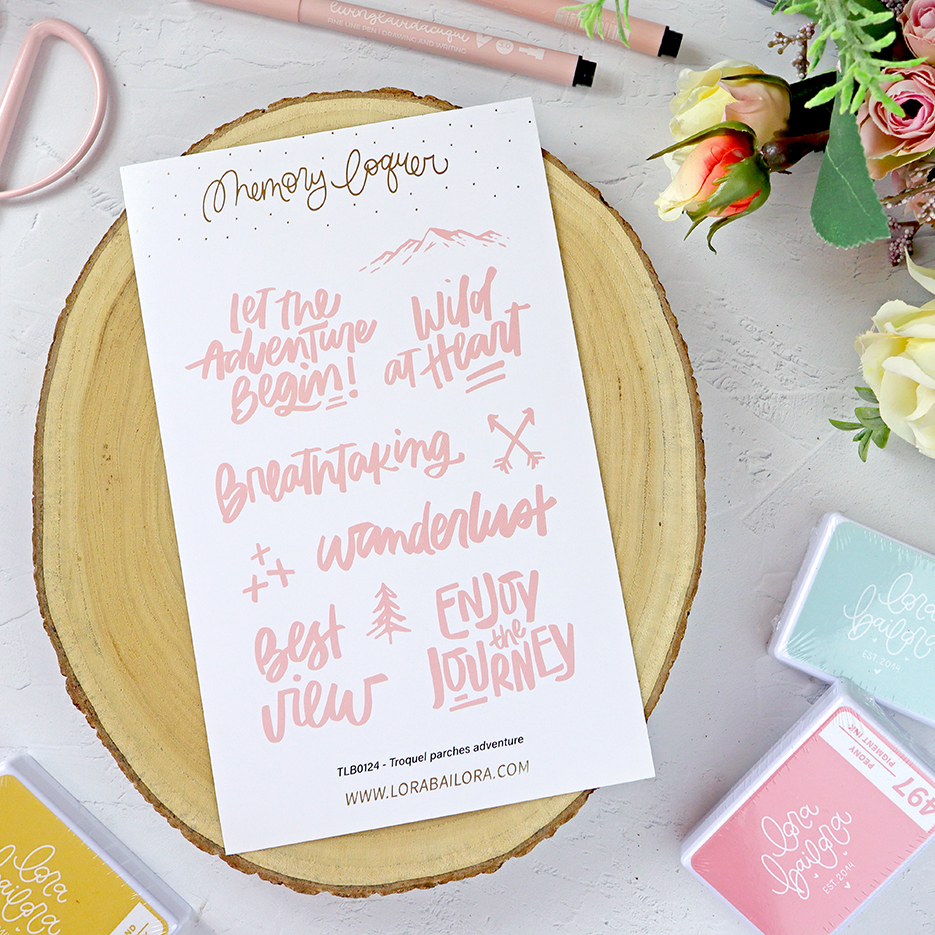 livinglavidacuqui
FINE LINE PEN | DRAWING AND WRITING
Memory loquer
Let the
Adventure
Begin!
Wild
at Heart
Breathtaking
wanderlust
Best
view
ENJOY
the
JOURNEY
TLB0124 - Troquel parches adventure
WWW.LORABAILORA.COM
lora
bailora
EST. 2014
PEONY
PIGMENT INK
497
lora
bailora
EST. 2014
lora
bailora